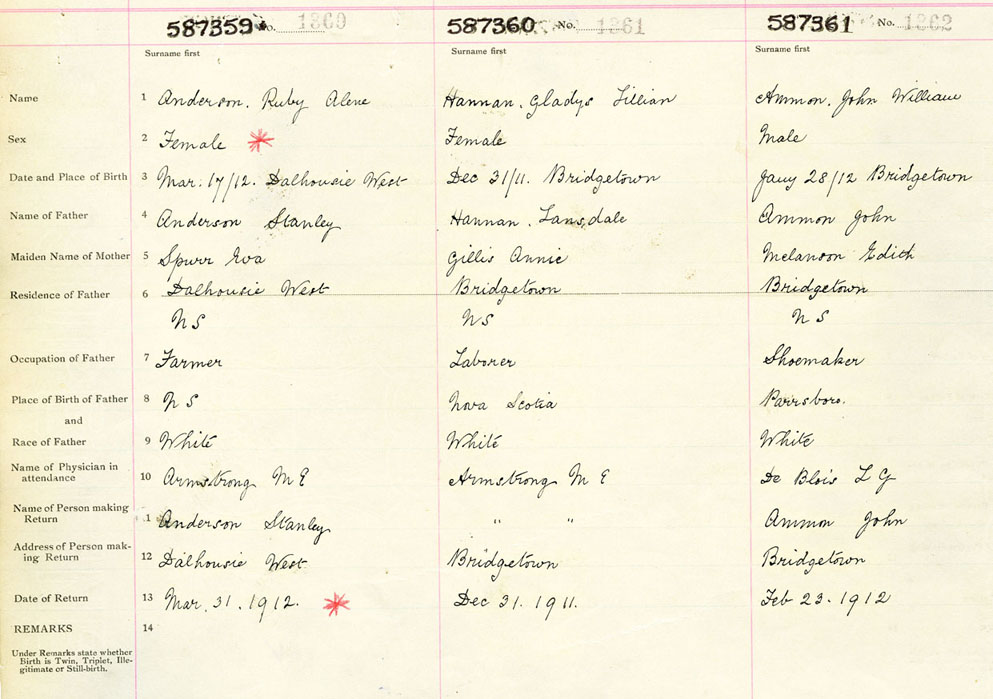 587359 No. 1360 587360 No. 1361 587361 No. 1362
Surname first Surname first Surname first
Name 1 Anderson, Ruby Alene Hannan, Gladys Lillian Ammon, John William
Sex 2 Female Female Male
Date and Place of Birth 3 Mar. 17/12. Dalhousie West Dec 31/11. Bridgetown Jany 28/12 Bridgetown
Name of Father 4 Anderson Stanley Hannan, Lansdale Ammon John
Maiden Name of Mother 5 Spurr Eva Gillis Annie Melanson Edith
Residence of Father 6 Dalhousie West Bridgetown Bridgetown
N S N S N S
Occupation of Father 7 Farmer Laborer Shoemaker
Place of Birth of Father 8 N S Nova Scotia Parrsboro.
and
Race of Father 9 White White White
Name of Physician in
attendance 10 Armstrong M E Armstrong M E De Blois L G
Name of Person making
Return 11 Anderson Stanley " " Ammon John
Address of Person mak-
ing Return 12 Dalhousie West Bridgetown Bridgetown
Date of Return 13 Mar. 31. 1912. Dec 31. 1911. Feb 23. 1912
REMARKS 14
Under Remarks state whether
Birth is Twin, Triplet, Ille-
gitimate or Still-birth.